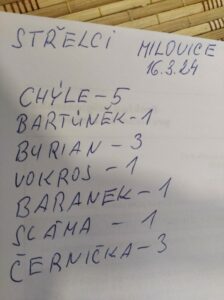 STŘELCI MILOVICE
16.3.24
CHÝLE-5
BARTŮNĚK-1
BURIAN-3
VOKROS-1
BARANEK-1
SLÁMA-1
ČERNIČKA-3